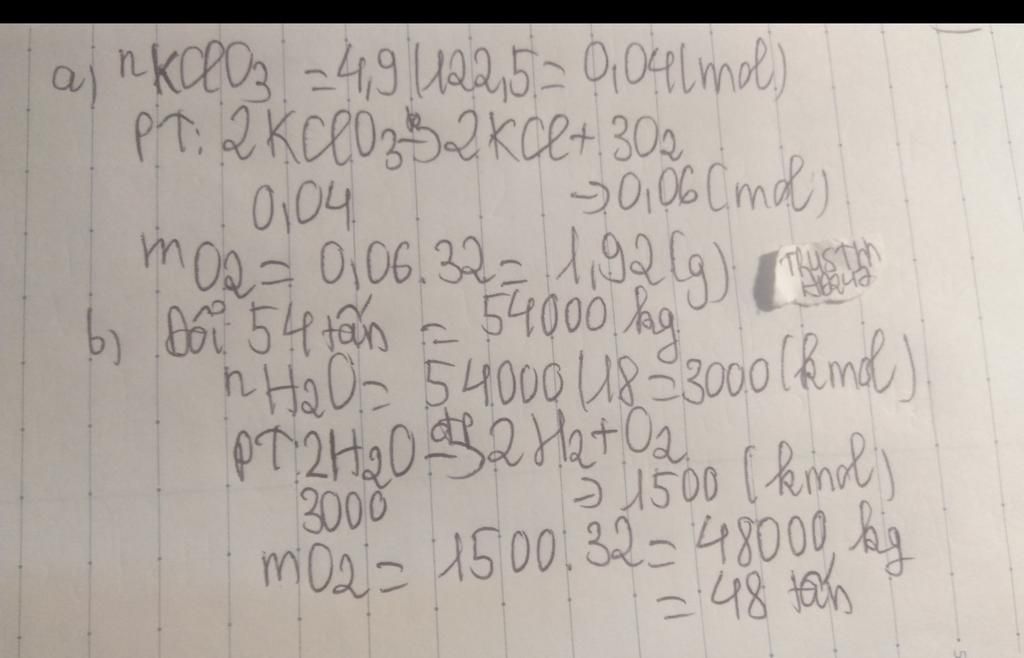 a) nKClO3 = 4,9/122,5 = 0,04(mol)
PT: 2KClO3 → 2KCl + 3O2
0,04 → 0,06(mol)
mO2 = 0,06.32 = 1,92(g)
b) Đổi 54 tấn = 54000 kg
nH2O = 54000/18 = 3000(kmol)
PT: 2H2O đp→ 2H2 + O2
3000 → 1500 (kmol)
mO2 = 1500.32 = 48000 kg
= 48 tấn